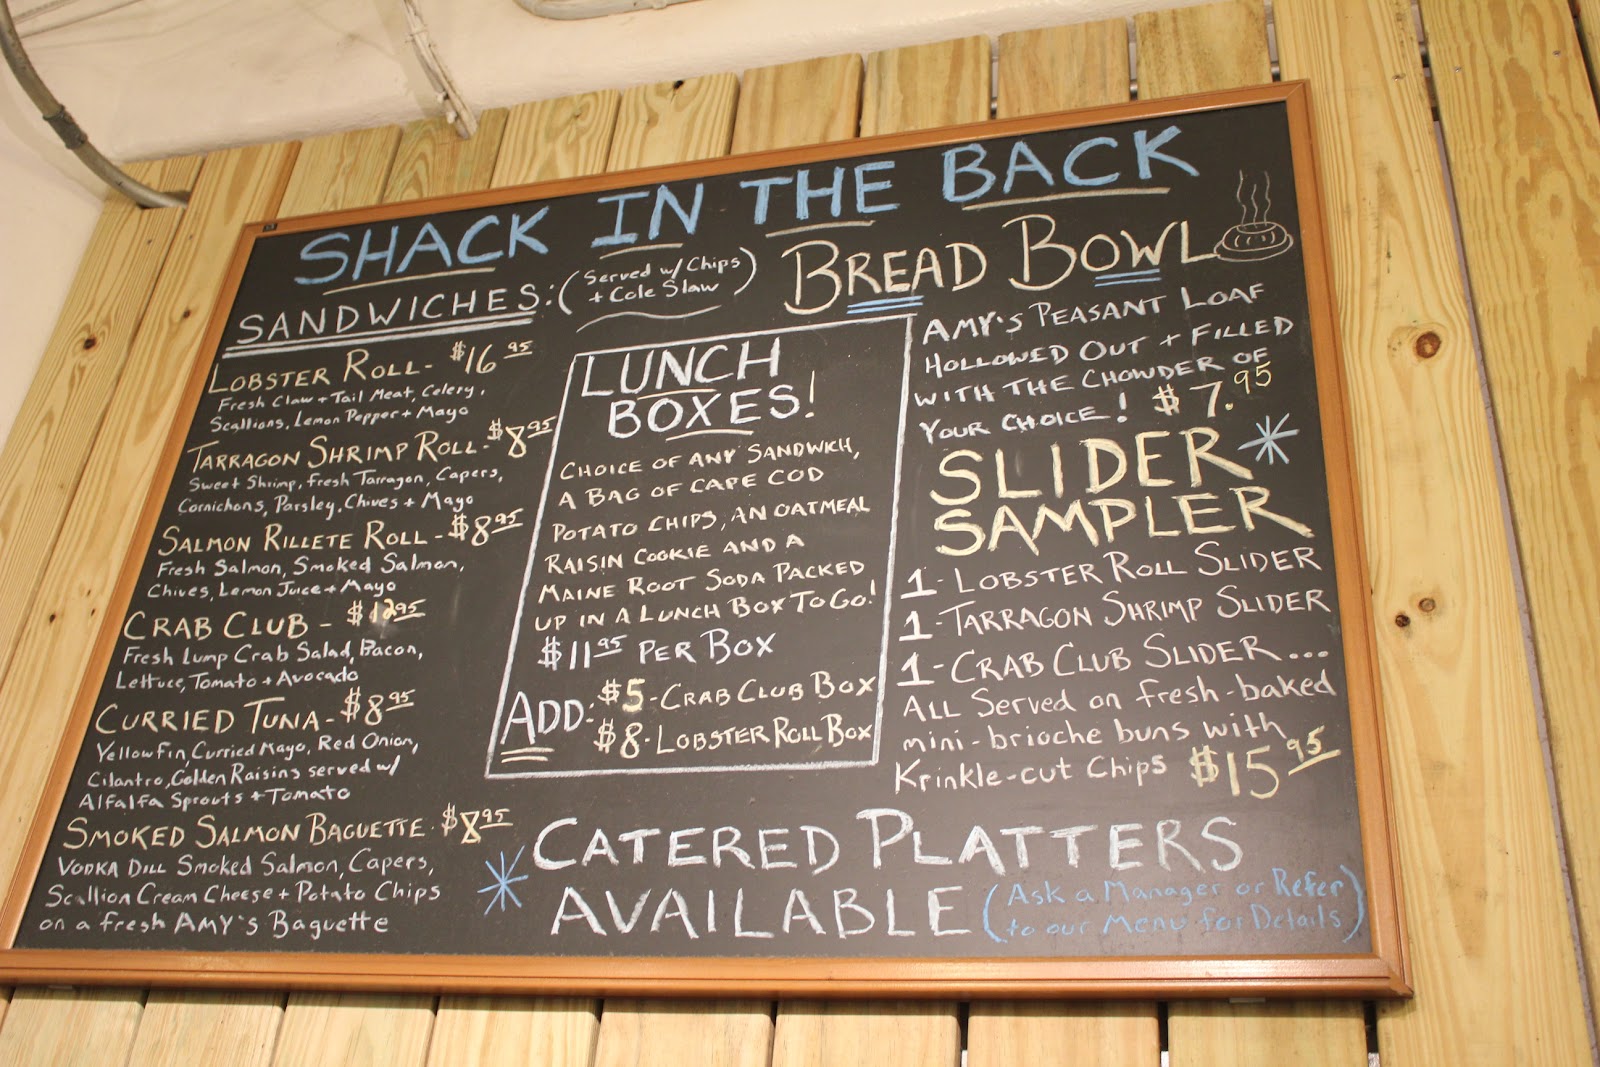 SHACK IN THE BACK
SANDWICHES: (Served w/ Chips
+ Cole Slaw)
LOBSTER ROLL - $16 95
Fresh Claw + Tail Meat, Celery,
Scallions, Lemon Pepper + Mayo
TARRAGON SHRIMP ROLL - $8 95
Sweet Shrimp, fresh Tarragon, Capers,
Cornichons, Parsley, Chives + Mayo
SALMON RILLETE ROLL - $8 95
Fresh Salmon, Smoked Salmon,
Chives, Lemon Juice + Mayo
CRAB CLUB - $12 95
Fresh Lump Crab Salad, Bacon,
Lettuce, Tomato + Avocado
CURRIED TUNA - $8 95
Yellowfin, Curried Mayo, Red Onion,
Cilantro, Golden Raisins served w/
Alfalfa Sprouts + Tomato
SMOKED SALMON BAGUETTE - $8 95
VODKA DILL Smoked Salmon, Capers,
Scallion Cream Cheese + Potato Chips
on a fresh AMY'S Baguette
LUNCH
BOXES!
CHOICE OF ANY SANDWICH,
A BAG OF CAPE COD
POTATO CHIPS, AN OATMEAL
RAISIN COOKIE AND A
MAINE ROOT SODA PACKED
UP IN A LUNCH BOX TO GO!
$11 95 PER BOX
ADD: $5 - CRAB CLUB BOX
$8 - LOBSTER ROLL BOX
BREAD BOWL
AMY'S PEASANT LOAF
HOLLOWED OUT + FILLED
WITH THE CHOWDER OF
YOUR CHOICE! $7.95
SLIDER
SAMPLER
1 - LOBSTER ROLL SLIDER
1 - TARRAGON SHRIMP SLIDER
1 - CRAB CLUB SLIDER...
ALL Served on fresh-baked
mini-brioche buns with
Krinkle-cut Chips $15 95
CATERED PLATTERS
AVAILABLE (Ask a Manager or Refer
to our Menu for Details)